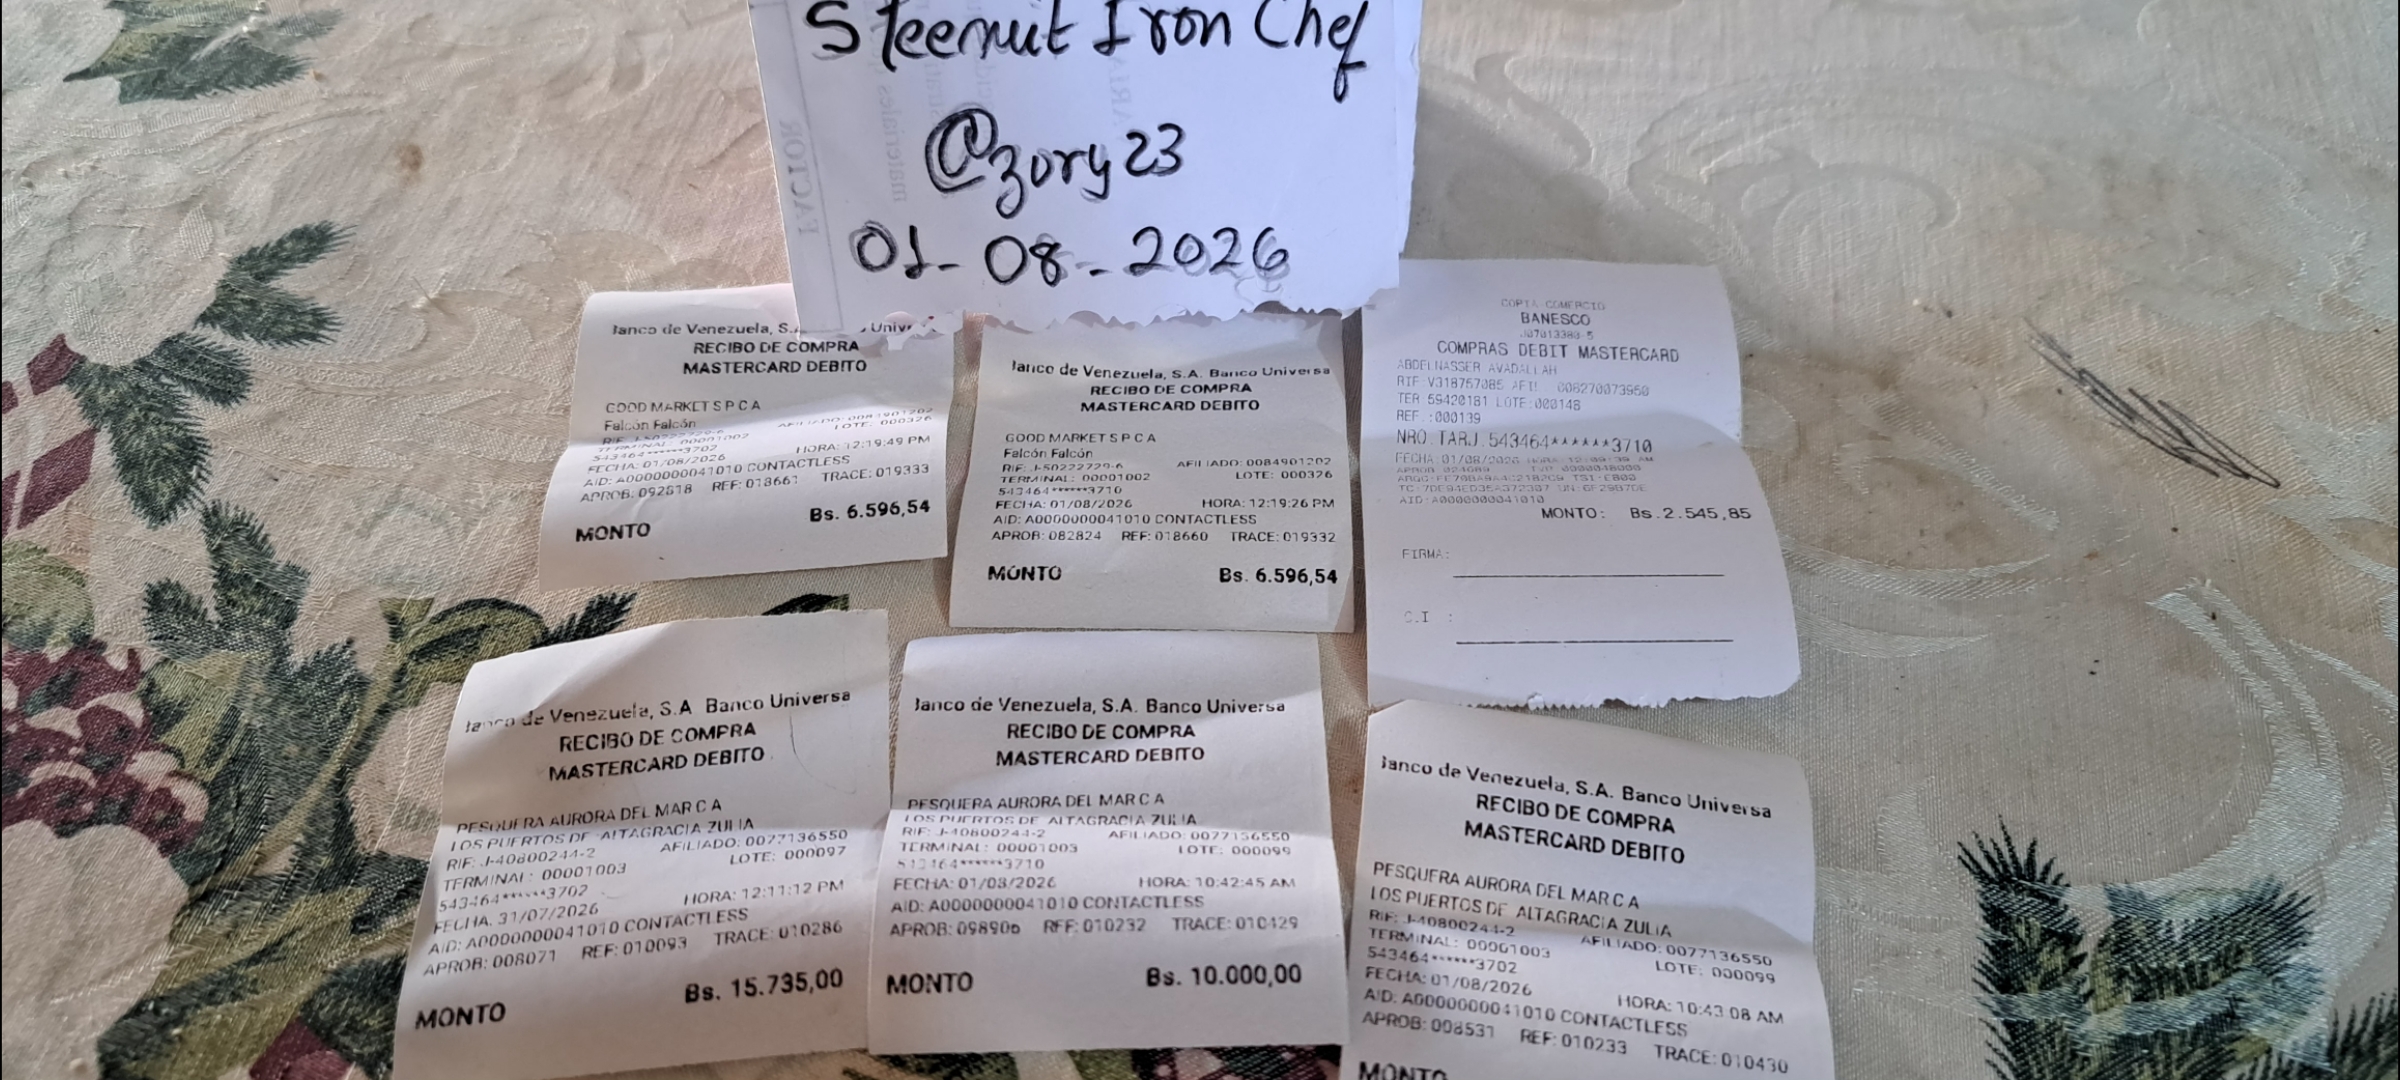 Steemit Iron Chef
@zory23
01-08-2026
FACTOR
Banco de Venezuela, S.A. Univ
RECIBO DE COMPRA
MASTERCARD DEBITO
GOOD MARKET S P C A
Falcón Falcón
AFILIADO: 0084901202
RIF: J-50222729-6 LOTE: 000326
TERMINAL: 00001002
543464******3702 HORA: 12:19:49 PM
FECHA: 01/08/2026
AID: A0000000041010 CONTACTLESS
APROB: 092818 REF: 018661 TRACE: 019333
MONTO Bs. 6.596,54
Banco de Venezuela, S.A. Banco Universa
RECIBO DE COMPRA
MASTERCARD DEBITO
GOOD MARKET S P C A
Falcón Falcón
RIF: J-50222729-6 AFILIADO: 0084901202
TERMINAL: 00001002 LOTE: 000326
543464******3710
FECHA: 01/08/2026 HORA: 12:19:26 PM
AID: A0000000041010 CONTACTLESS
APROB: 082824 REF: 018660 TRACE: 019332
MONTO Bs. 6.596,54
COPIA COMERCIO
BANESCO
J07013380-5
COMPRAS DEBIT MASTERCARD
ABDELNASSER AVADALLAH
RIF: V318767085 AFIL: 008270073960
TER: 59420181 LOTE: 000148
REF.: 000139
NRO.TARJ. 543464******3710
FECHA: 01/08/2026
AID: A0000000041010
MONTO: Bs.2.545,85
FIRMA:
C.I :
Banco de Venezuela, S.A. Banco Universa
RECIBO DE COMPRA
MASTERCARD DEBITO
PESQUERA AURORA DEL MAR C A
LOS PUERTOS DE ALTAGRACIA ZULIA
RIF: J-40800244-2 AFILIADO: 0077136550
TERMINAL: 00001003 LOTE: 000097
543464******3702
FECHA: 31/07/2026 HORA: 12:11:12 PM
AID: A0000000041010 CONTACTLESS
APROB: 008071 REF: 010093 TRACE: 010286
MONTO Bs. 15.735,00
Banco de Venezuela, S.A. Banco Universa
RECIBO DE COMPRA
MASTERCARD DEBITO
PESQUERA AURORA DEL MAR C A
LOS PUERTOS DE ALTAGRACIA ZULIA
RIF: J-40800244-2 AFILIADO: 0077136550
TERMINAL: 00001003 LOTE: 000099
543464******3710
FECHA: 01/08/2026 HORA: 10:42:45 AM
AID: A0000000041010 CONTACTLESS
APROB: 098906 REF: 010232 TRACE: 010429
MONTO Bs. 10.000,00
Banco de Venezuela, S.A. Banco Universa
RECIBO DE COMPRA
MASTERCARD DEBITO
PESQUERA AURORA DEL MAR C A
LOS PUERTOS DE ALTAGRACIA ZULIA
RIF: J-40800244-2 AFILIADO: 0077136550
TERMINAL: 00001003 LOTE: 000099
543464******3702
FECHA: 01/08/2026 HORA: 10:43:08 AM
AID: A0000000041010 CONTACTLESS
APROB: 008531 REF: 010233 TRACE: 010430
MONTO